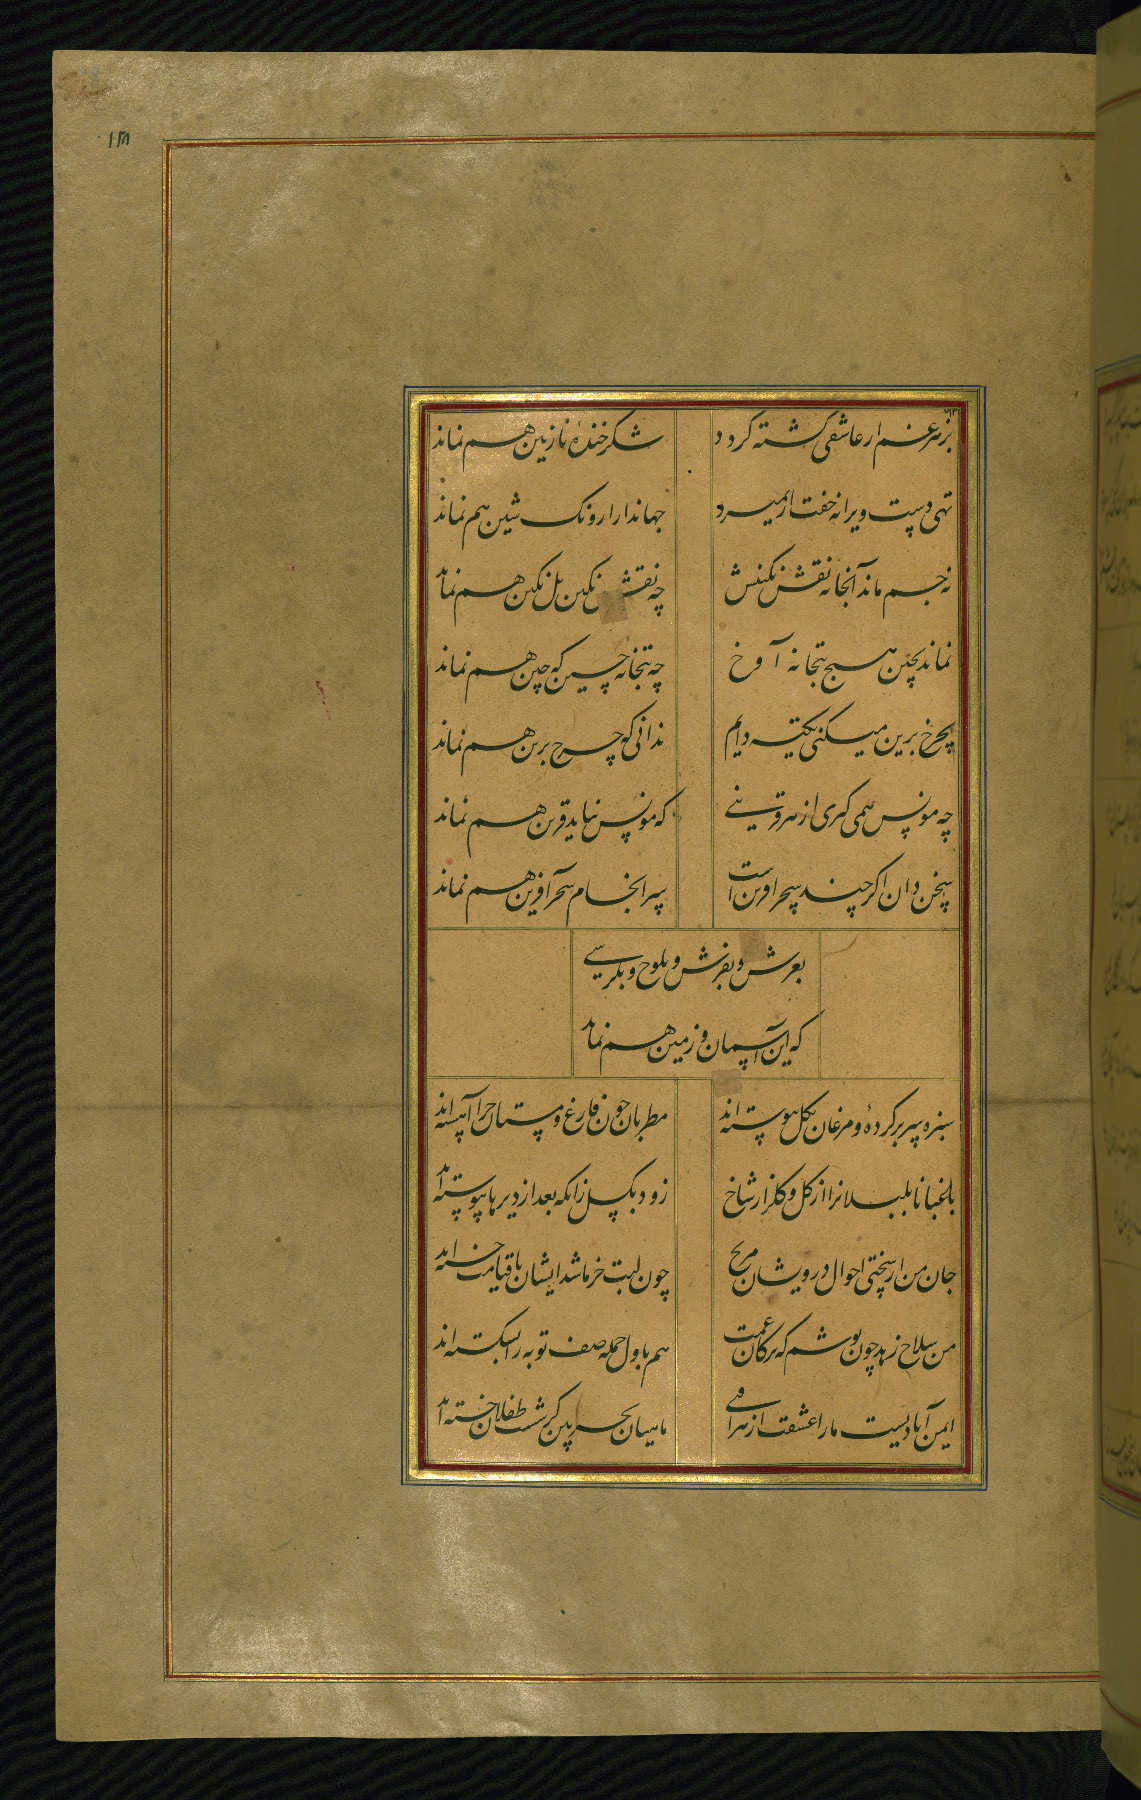 ۱۲۸
بزهر غم ار عاشقی کشته کردد شکر خندهٔ نازنین هم نماند
تهی دست ویرانه خفت ار بمیرد جهاندار ارونک شین هم نماند
نه جم ماند آنجا نه نقش نکینش چه نقش نکین بل نکین هم نماند
نماند بچین هیچ بتخانه آوخ چه بتخانه چین که چین هم نماند
بچرخ برین میکنی تکیه دایم ندانی که چرخ برین هم نماند
چه مونس همی کیری از هر قرینے که مونس نباید قرین هم نماند
سخن دان اکر چند سحر افرین است سرانجام سحر آفرین هم نماند
بعرش و بفرش و بلوح و بکرسے
که این آسمان و زمین هم نماند
سبزه سر بر کرده و مرغان بکل پیوسته اند مطربان چون فارغ و مستان چرا آهسته اند
باغبانا بلبلانرا از کل و کلزار شاخ زود بکسل زانکه بعد از دیرها پیوسته اند
جان من از سختی احوال درویشان مرنج چون لبت خرما شد ایشان تا قیامت خسته اند
من سلاح زهد چون پوشم که ترکان غمت هم باول حمله صف توبه را بشکسته اند
ایمن آبادیست ما را عشقت از هر افتے ماهیان بحر بین کز شست طفلان جسته اند